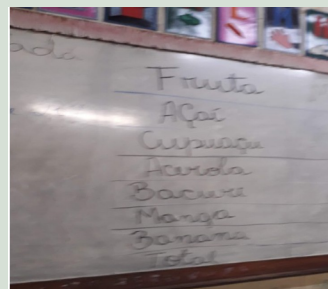 ada
Fruta
Açaí
Cupuaçu
Acerola
Bacuri
Manga
Banana
Total